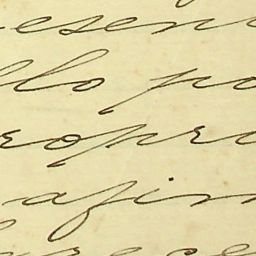 esen
llo po
ropri
afin